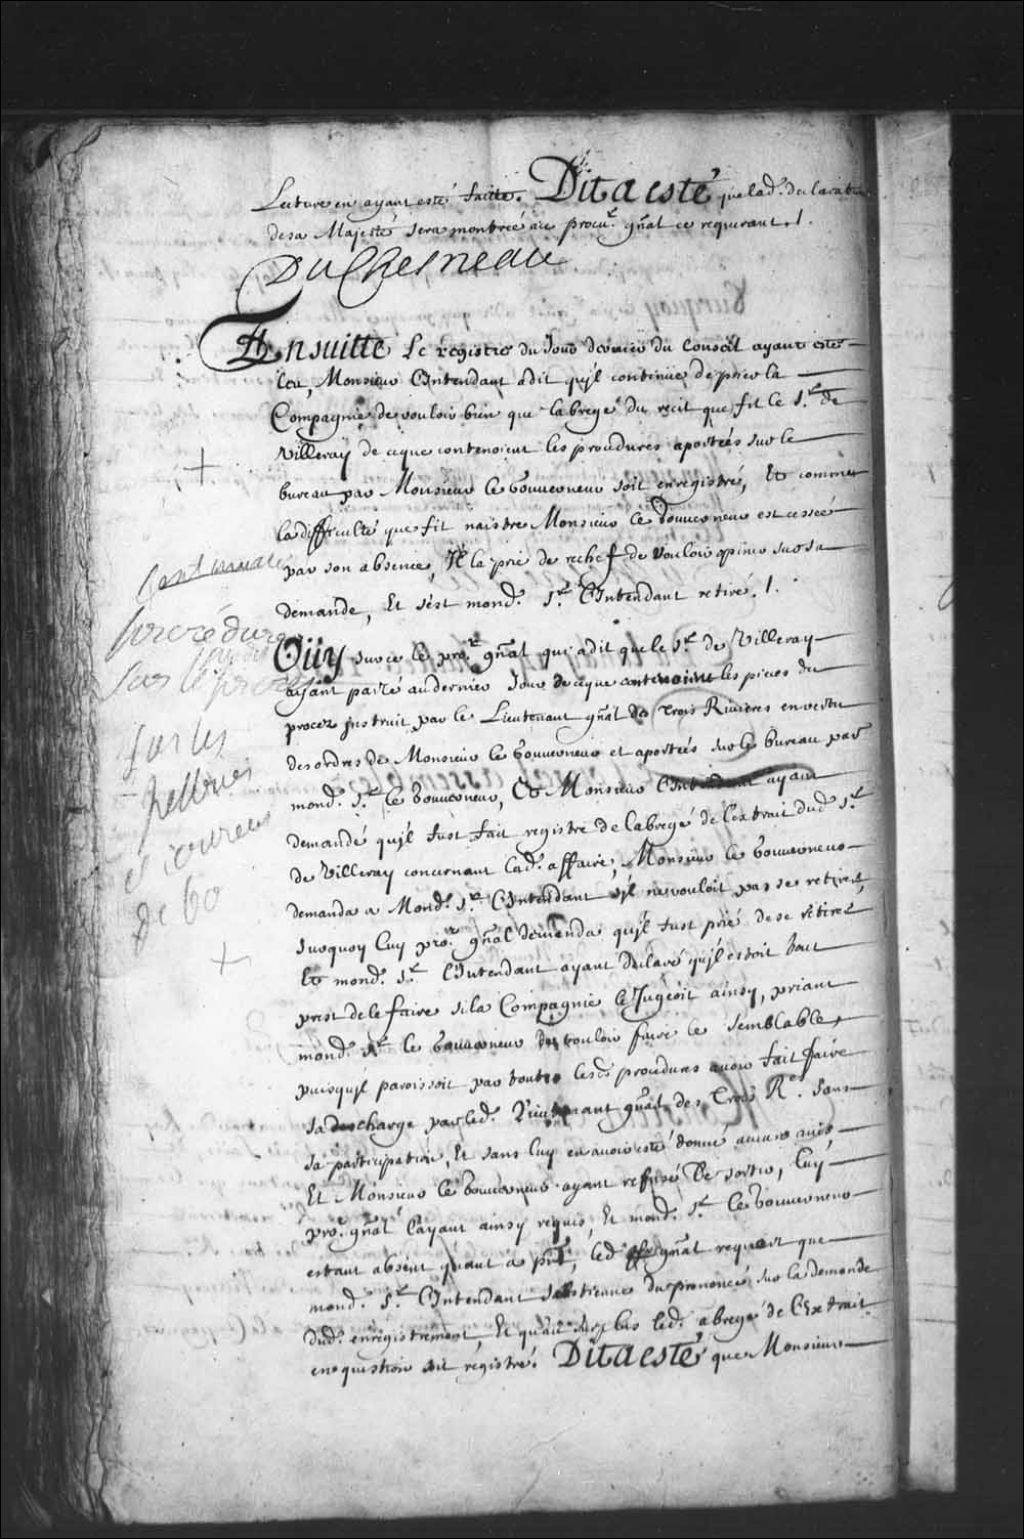 Lecture en ayant esté faitte. Dit a esté que lad. declaration
de sa Majesté sera montrée au procu.r gñal ce requerant ./.
DuChesneau
Ensuitte Le registre du Jour dernier du Conseil ayant esté
leu, Monsieur L'Intendant a dit qu'jl continüe de prier la
Compagnie de vouloir bien que l'abregé du recit que fit le s.r de
Villeray de ce que contenoient les procedures aportées sur le
bureau par Monsieur le Gouuerneur soit enregistré, Et comme
la difficulté que fit naistre Monsieur le Gouuerneur est cessée
par son absence, Jl la prie de rechef de vouloir opiner sur sa
demande, Et s'est mond. s.r L'Intendant retiré ./.
Continuation
procedure
sur le procez
sur les
pelletries
é coureurs
de bo
Oüy sur ce le pro.r gñal qui a dit que le s.r de Villeray
ayant parlé au dernier Jour de ce que contenoient les pieces du
procez jnstruit par le Lieutenant gñal des Trois Riuieres en vertu
des ordres de Monsieur le Gouuerneur et aportées sur le bureau par
mond. s.r le Gouuerneur, Et Monsieur L'Intendant ayant
demandé qu'jl fust fait registre de l'abregé de l'extrait dud. s.r
de Villeray concernant lad. affaire, Monsieur le Gouuerneur
demanda a Mond. s.r L'Intendant s'jl ne vouloit pas se retirer,
surquoy luy pro.r gñal demanda qu'jl fust prié de se retirer
Et mond. s.r l'Intendant ayant declaré qu'jl estoit tout
prest de le faire si la Compagnie le Jugeoit ainsy, priant
mond. s.r le Gouuerneur de vouloir faire le semblable,
puisqu'jl paroissoit par toutes lesd. procedures auoir fait faire
sa descharge par led. Lieutenant gñal des Trois R.es sans
sa participation, Et sans luy en auoir esté donné aucun auis
Et Monsieur le Gouuerneur ayant refusé de sortir, luy
pro.r gñal l'ayant ainsy requis, Et mond. s.r le Gouuerneur
estant absent quant a pñt, led. pro.r gñal requert que
mond. s.r L'Intendant s'abstienne du prononcé sur la demande
dud. enregistrement, Et qu'au surplus led. abregé de l'Extrait
en question soit registré. Dit a esté que Monsieur